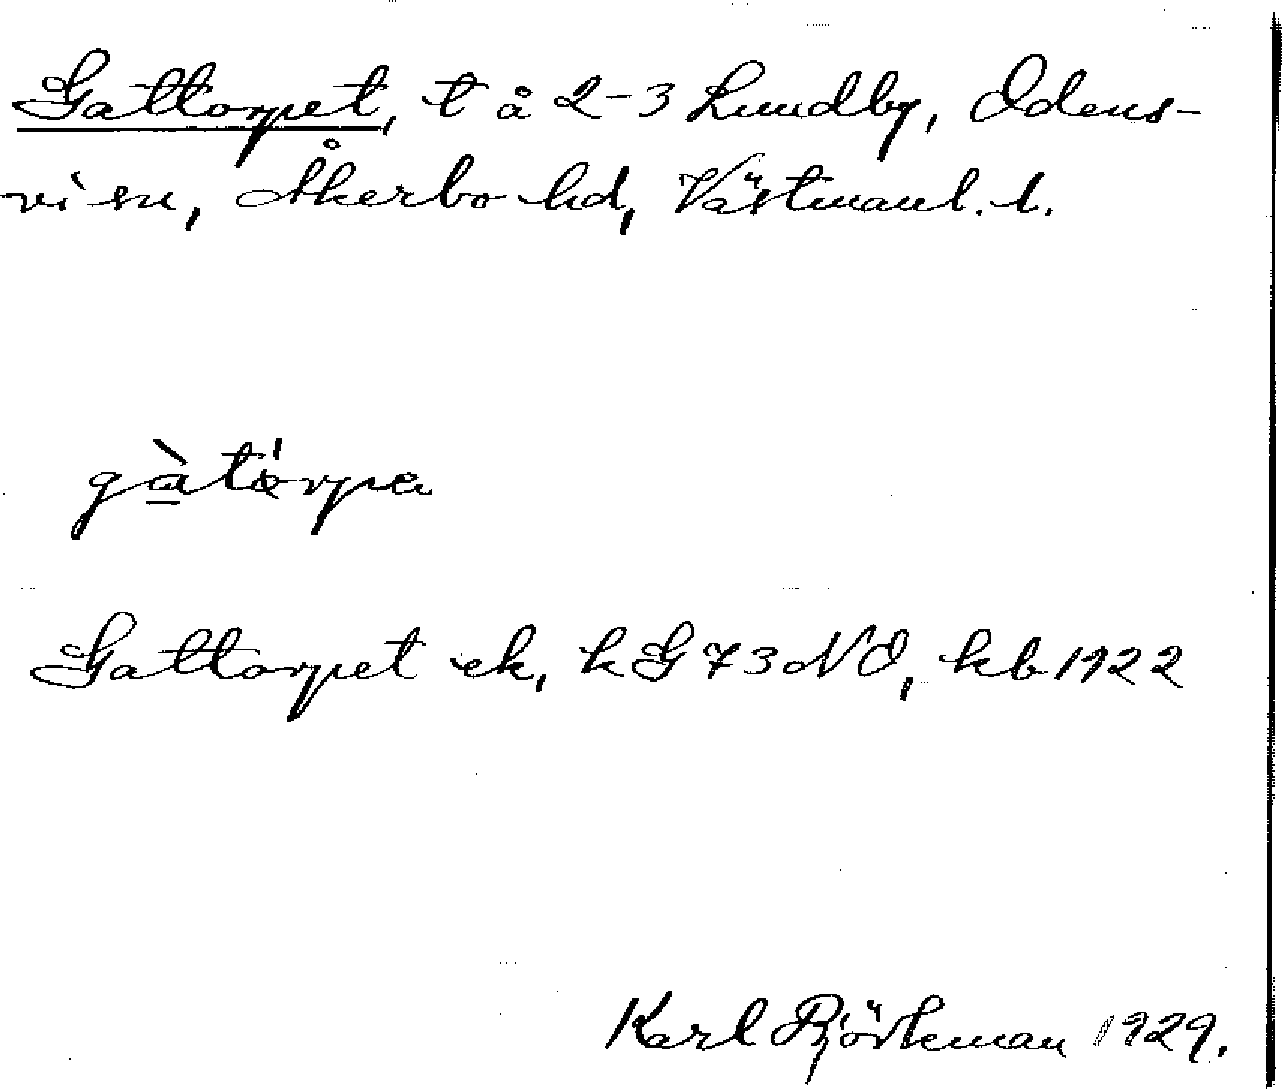 Gattorpet, t å 2-3 Lundby, Odens-
vi sn, Åkerbo hd, Västmanl. l.
gàtórpa
Gattorpet ek, k G 73 NO, kb 1922
Karl Björkman 1929.